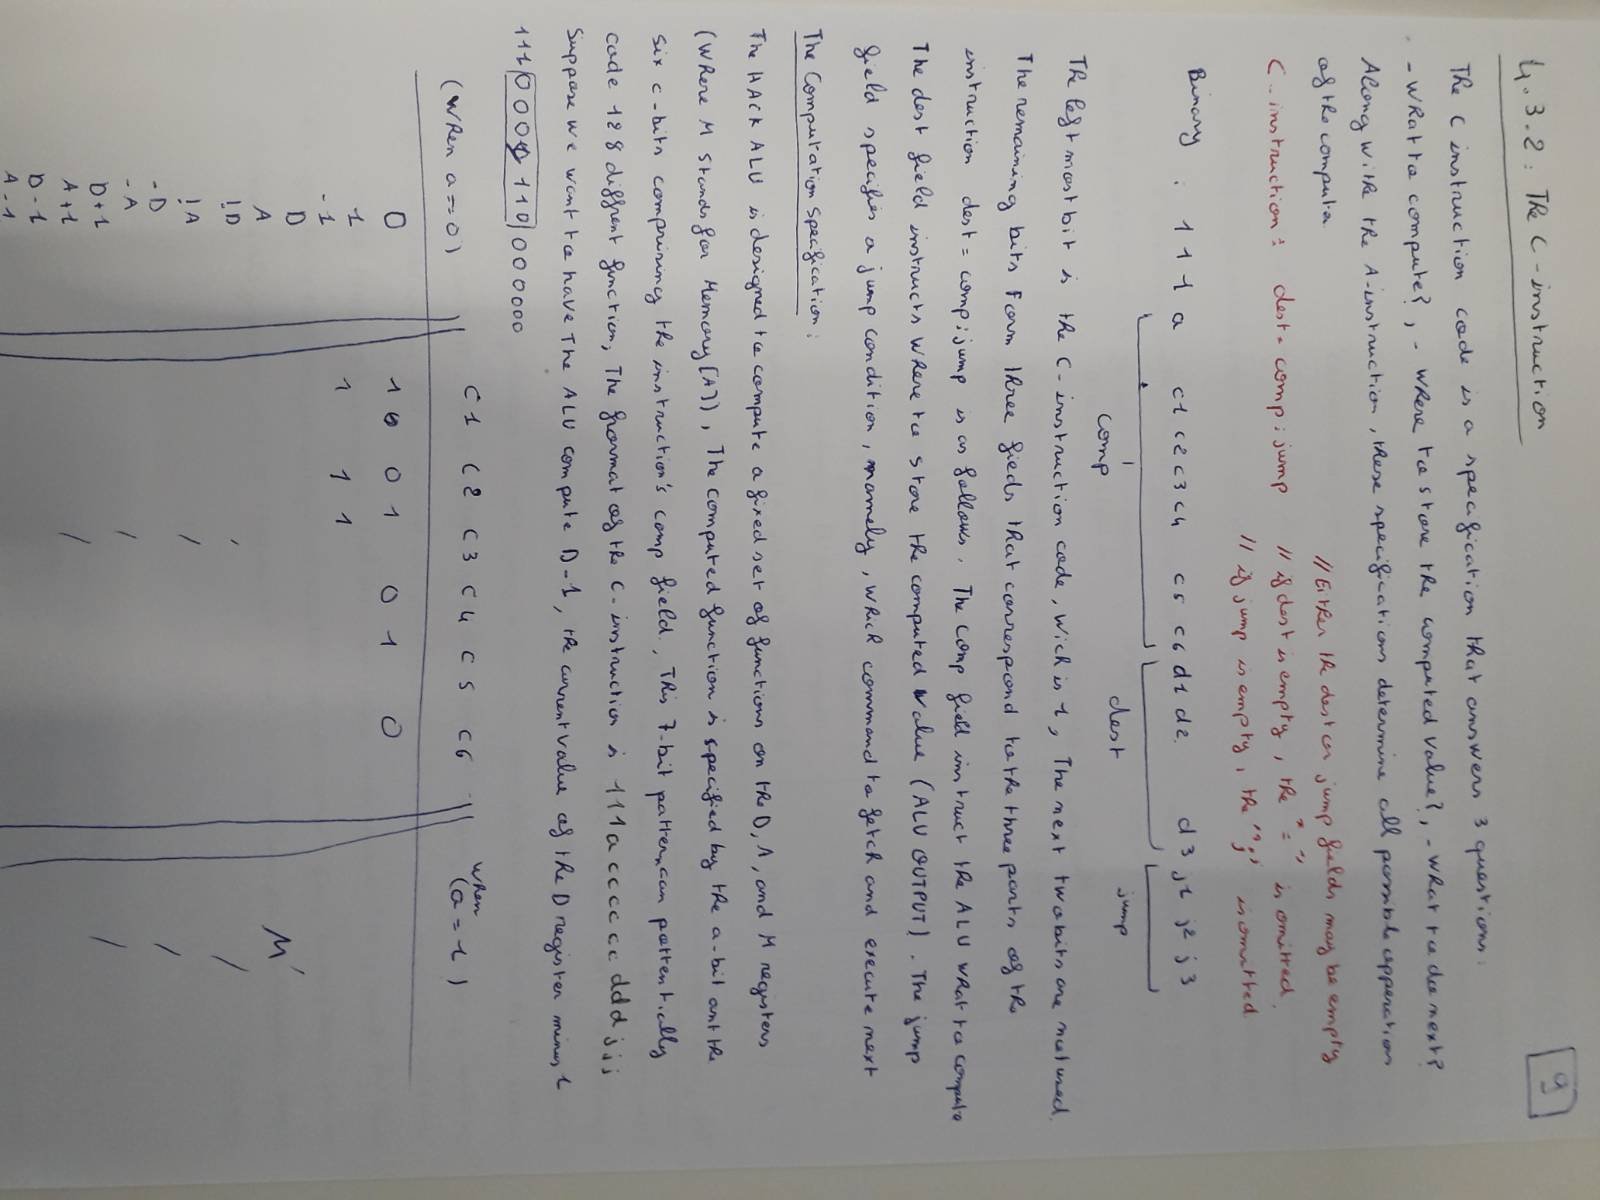 9
4.3.2: The C-instruction
The C instruction code is a specification that answers 3 questions:
- What to compute?, - where to store the computed value?, - what to do next?
Along with the A-instruction, these specifications determine all possible opperations
of the computa
// Either the dest or jump fields may be empty
C-instruction: dest = comp; jump // if dest is empty, the "=" is omitted.
// if jump is empty, the ";" is omitted
Binary : 1 1 1 a c1 c2 c3 c4 c5 c6 d1 d2 d3 j1 j2 j3
comp dest jump
The left most bit is the C-instruction code, wich is 1, The next two bits are not used.
The remaining bits Form three fieds that correspond to the three parts of the
instruction dest = comp; jump is as follows. The comp field instruct the ALU what to compute
The dest field instructs where to store the computed value (ALU OUTPUT). The jump
field specifies a jump condition, namely, which command to fetch and execute next
The Computation specification:
The HACK ALU is designed to compute a fixed set of functions on the D, A, and M registers
(where M stands for Memory[A]), The computed function is specified by the a-bit ant the
six c-bits comprising the instruction's comp field, This 7-bit pattern can pottentically
code 128 diffrent function, The format of the C-instruction is 111a cccc cc ddd jjj
Suppose we want to have The ALU compute D-1, the current value of the D register minus 1
111 0001110 000000
(when a==0) c1 c2 c3 c4 c5 c6 when (a=1)
0 1 0 1 0 1 0
1 1 1 1
-1
D
A M
!D
!A
-D
-A
D+1
A+1
D-1
A-1